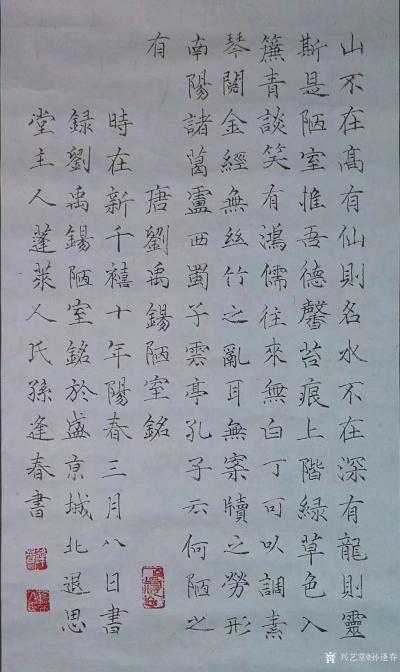 山不在高有仙則名水不在深有龍則靈
斯是陋室惟吾德馨苔痕上階綠草色入
簾青談笑有鴻儒往來無白丁可以調素
琴閱金經無絲竹之亂耳無案牘之勞形
南陽諸葛盧西蜀子雲亭孔子云何陋之
有
唐劉禹錫陋室銘
時在新千禧十年陽春三月八日書
録劉禹錫陋室銘於盛京城北退思
堂主人蓬萊人氏孫逢春書
兴艺堂@孙逢春